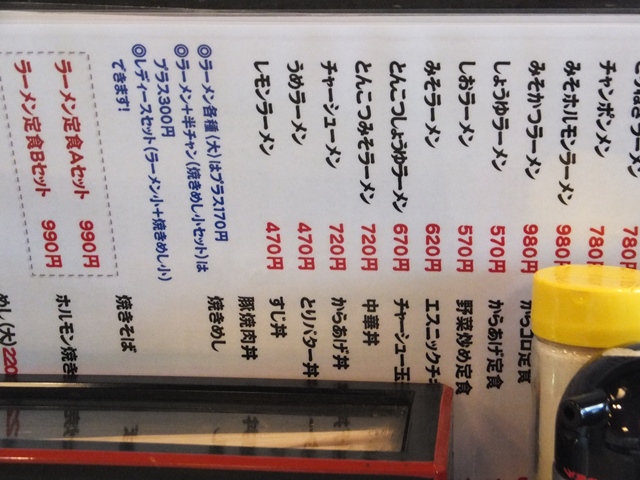 ラーメン 780円
チャンポンメン 780円
みそホルモンラーメン 980
みそかつラーメン 980円
しょうゆラーメン 570円
しおラーメン 570円
みそラーメン 620円
とんこつしょうゆラーメン 670円
とんこつみそラーメン 720円
チャーシューメン 720円
うめラーメン 470円
レモンラーメン 470円
◎ラーメン各種(大)はプラス170円
◎ラーメン+半チャン(焼きめし小セット)は
プラス300円
◎レディースセット(ラーメン小+焼きめし小)
できます!
ラーメン定食Aセット 990円
ラーメン定食Bセット 990円
からコロ定食
からあげ定食
野菜炒め定食
エスニックチ
チャーシュー玉
中華丼
からあげ丼
とりバター丼
すじ丼
豚焼肉丼
焼きめし
焼きそば
ホルモン焼き
めし(大)220